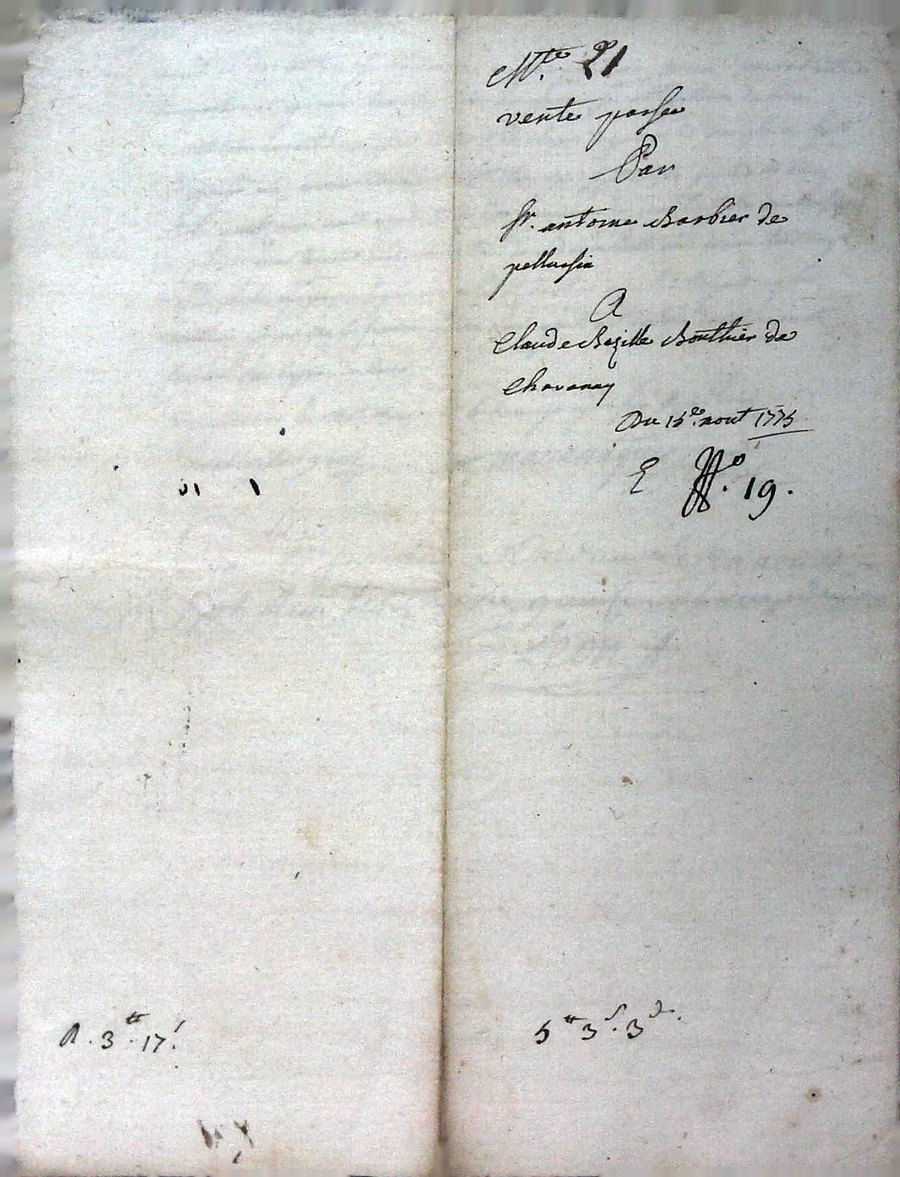 Mte. 21
vente passée
Par
Sr. antoine Barbier de
pellussin
A
Claude Bazille Bouthier de
Chavanay
Du 15e. aout 1775
E No. 19.
R. 3tt. 17s
5tt 3s. 3d.